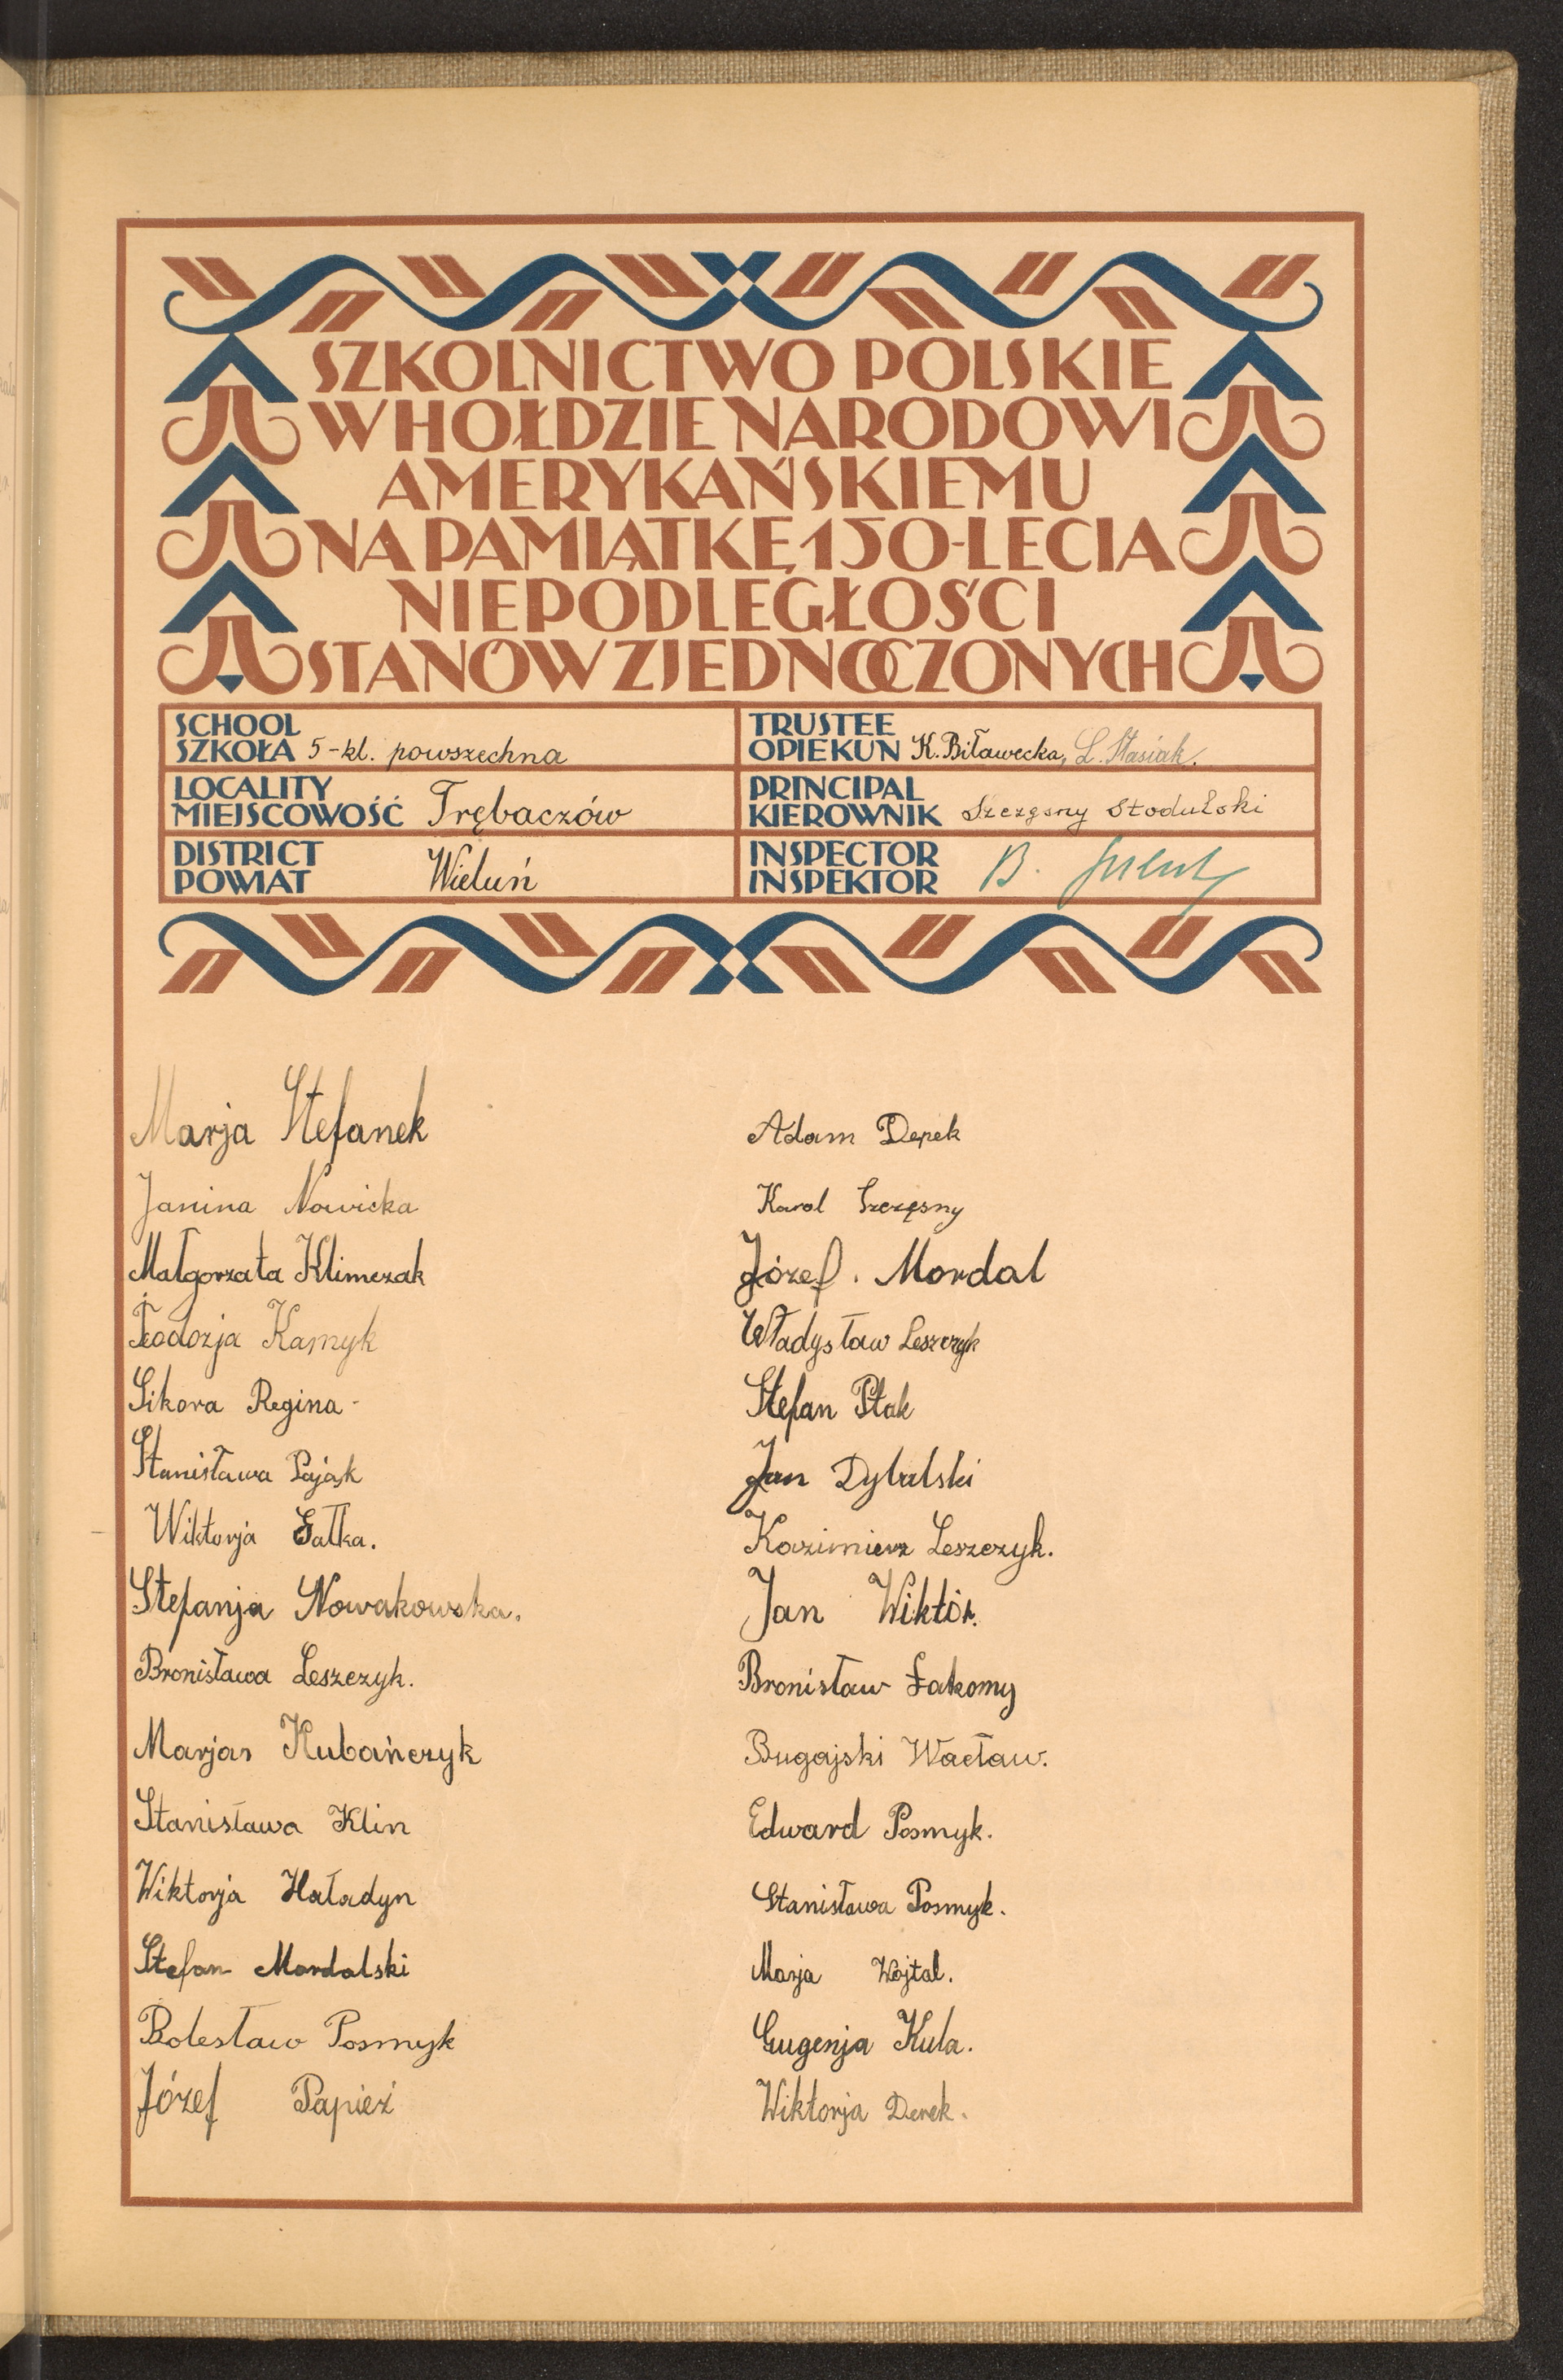 SZKOLNICTWO POLSKIE
W HOŁDZIE NARODOWI
AMERYKAŃSKIEMU
NA PAMIĄTKĘ 150-LECIA
NIEPODLEGŁOŚCI
STANÓW ZJEDNOCZONYCH
SCHOOL
SZKOŁA 5-kl. powszechna
TRUSTEE
OPIEKUN K. Biławecka, L. Stasiak.
LOCALITY
MIEJSCOWOŚĆ Trębaczów
PRINCIPAL
KIEROWNIK Szczęsny Stodulski
DISTRICT
POWIAT Wieluń
INSPECTOR
INSPEKTOR B.
Marja Stefanek
Janina Nowicka
Małgorzata Klimczak
Teodozja Kamyk
Sikora Regina
Stanisława Pająk
Wiktorja Gałka.
Stefanja Nowakowska.
Bronisława Leszczyk.
Marjan Kubańczyk
Stanisława Klin
Wiktorja Haładyn
Stefan Mordalski
Bolesław Posmyk
Józef Papież
Adam Derek
Karol Szczęsny
Józef. Mordal
Władysław Leszczyk
Stefan Ptak
Jan Dybalski
Kazimierz Leszczyk.
Jan Wiktór.
Bronisław Łakomy
Bugajski Wacław.
Edward Posmyk.
Stanisława Posmyk.
Marja Wojtal.
Eugenja Kula.
Wiktorja Derek.